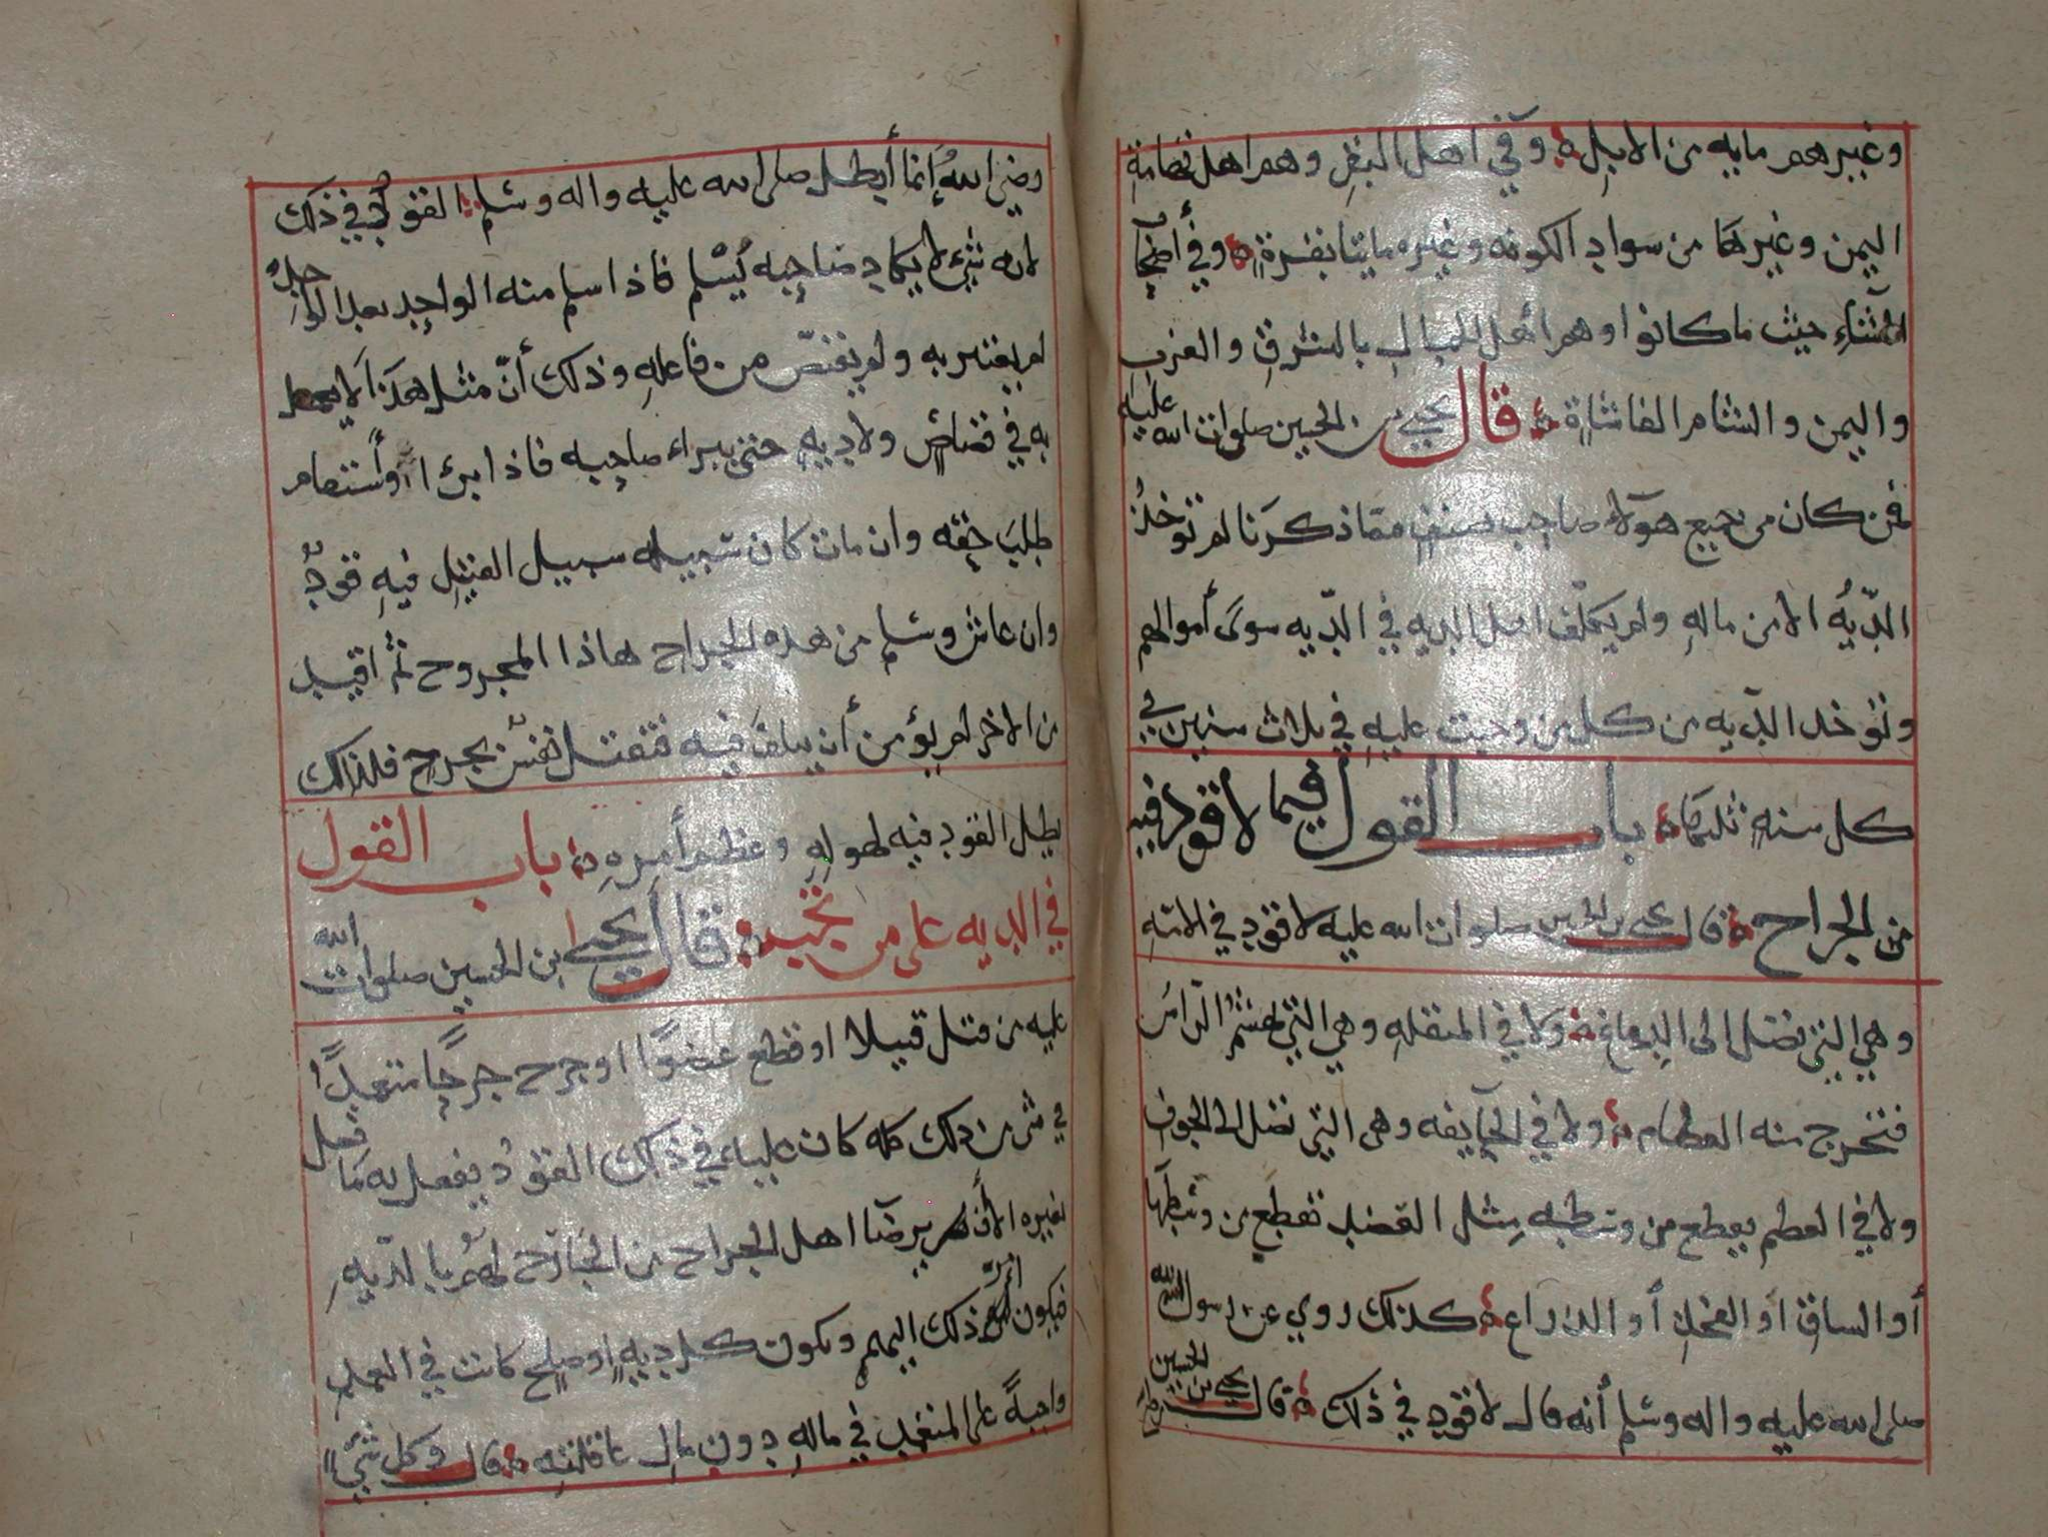 وغيرهم مايه من الابل ۞ وفي اهل البقر وهم اهل تهامة
اليمن وغيرها من سواد الكوفه وغيره مايتا بقرة ۞ وفي أصحاب
الشاء حيث ما كانوا وهم اهل الجبال بالمشرق والغرب
واليمن والشام الفا شاة ۞ قال يحيى بن الحسين صلوات الله عليه
فمن كان من جميع هولاء صاحب صنف مما ذكرنا لم تؤخذ
الديه الا من ماله ولم يكلف اهل الديه في الديه سوى أموالهم
وتوخذ الديه من كل من وجبت عليه في ثلاث سنين في
كل سنة ثلثها ۞ باب القول فيما لا قود فيه
من الجراح ۞ قال يحيى بن الحسين صلوات الله عليه لا قود في الامه
وهي التي تصل الى الدماغ ۞ ولا في المنقله وهي التي تهشم الراس
فتخرج منه العظام ۞ ولا في الجايفه وهي التي تصل الى الجوف
ولا في العظم يقطع من وسطه مثل القصبه تقطع من وسطها
أو الساق أو الفخذ أو الذراع ۞ كذلك روي عن رسول الله
صلى الله عليه واله وسلم أنه قال لا قود في ذلك ۞ قال يحيى بن الحسين
رضي الله إنما أبطل صلى الله عليه واله وسلم القود في ذلك
لانه شيء لا يكاد صاحبه يسلم فاذا سلم منه الواحد بعد الواحد
لم يعتبر به ولم يقتص من فاعله وذلك أن مثل هذا لا
به في قصاص ولا ديه حتى يبراء صاحبه فاذا برئ واستقام
طلب حقه وان مات كان سبيله سبيل القتيل فيه قود
وان عاش وسلم من هذه الجراح هاذا المجروح ثم اقيد
من الاخر لم يؤمن أن يتلف فيه فتقتل نفس بجرح فلذلك
بطل القود فيه لهوله وعظيم أمره ۞ باب القول
في الديه على من تجب ۞ قال يحيى بن الحسين صلوات الله
عليه من قتل قتيلا او قطع عضوا او جرح جرحا متعمدا
في شي من ذلك كله كان عليه في ذلك القود يفعل به كما فعل
بغيره الا أن يرضا اهل الجراح من الجارح لهم بالديه
فيكون امر ذلك اليهم وتكون كل ديه او صلح كانت في العمد
واجبة على المتعمد في ماله دون مال عاقلته ۞ قال وكل شيء